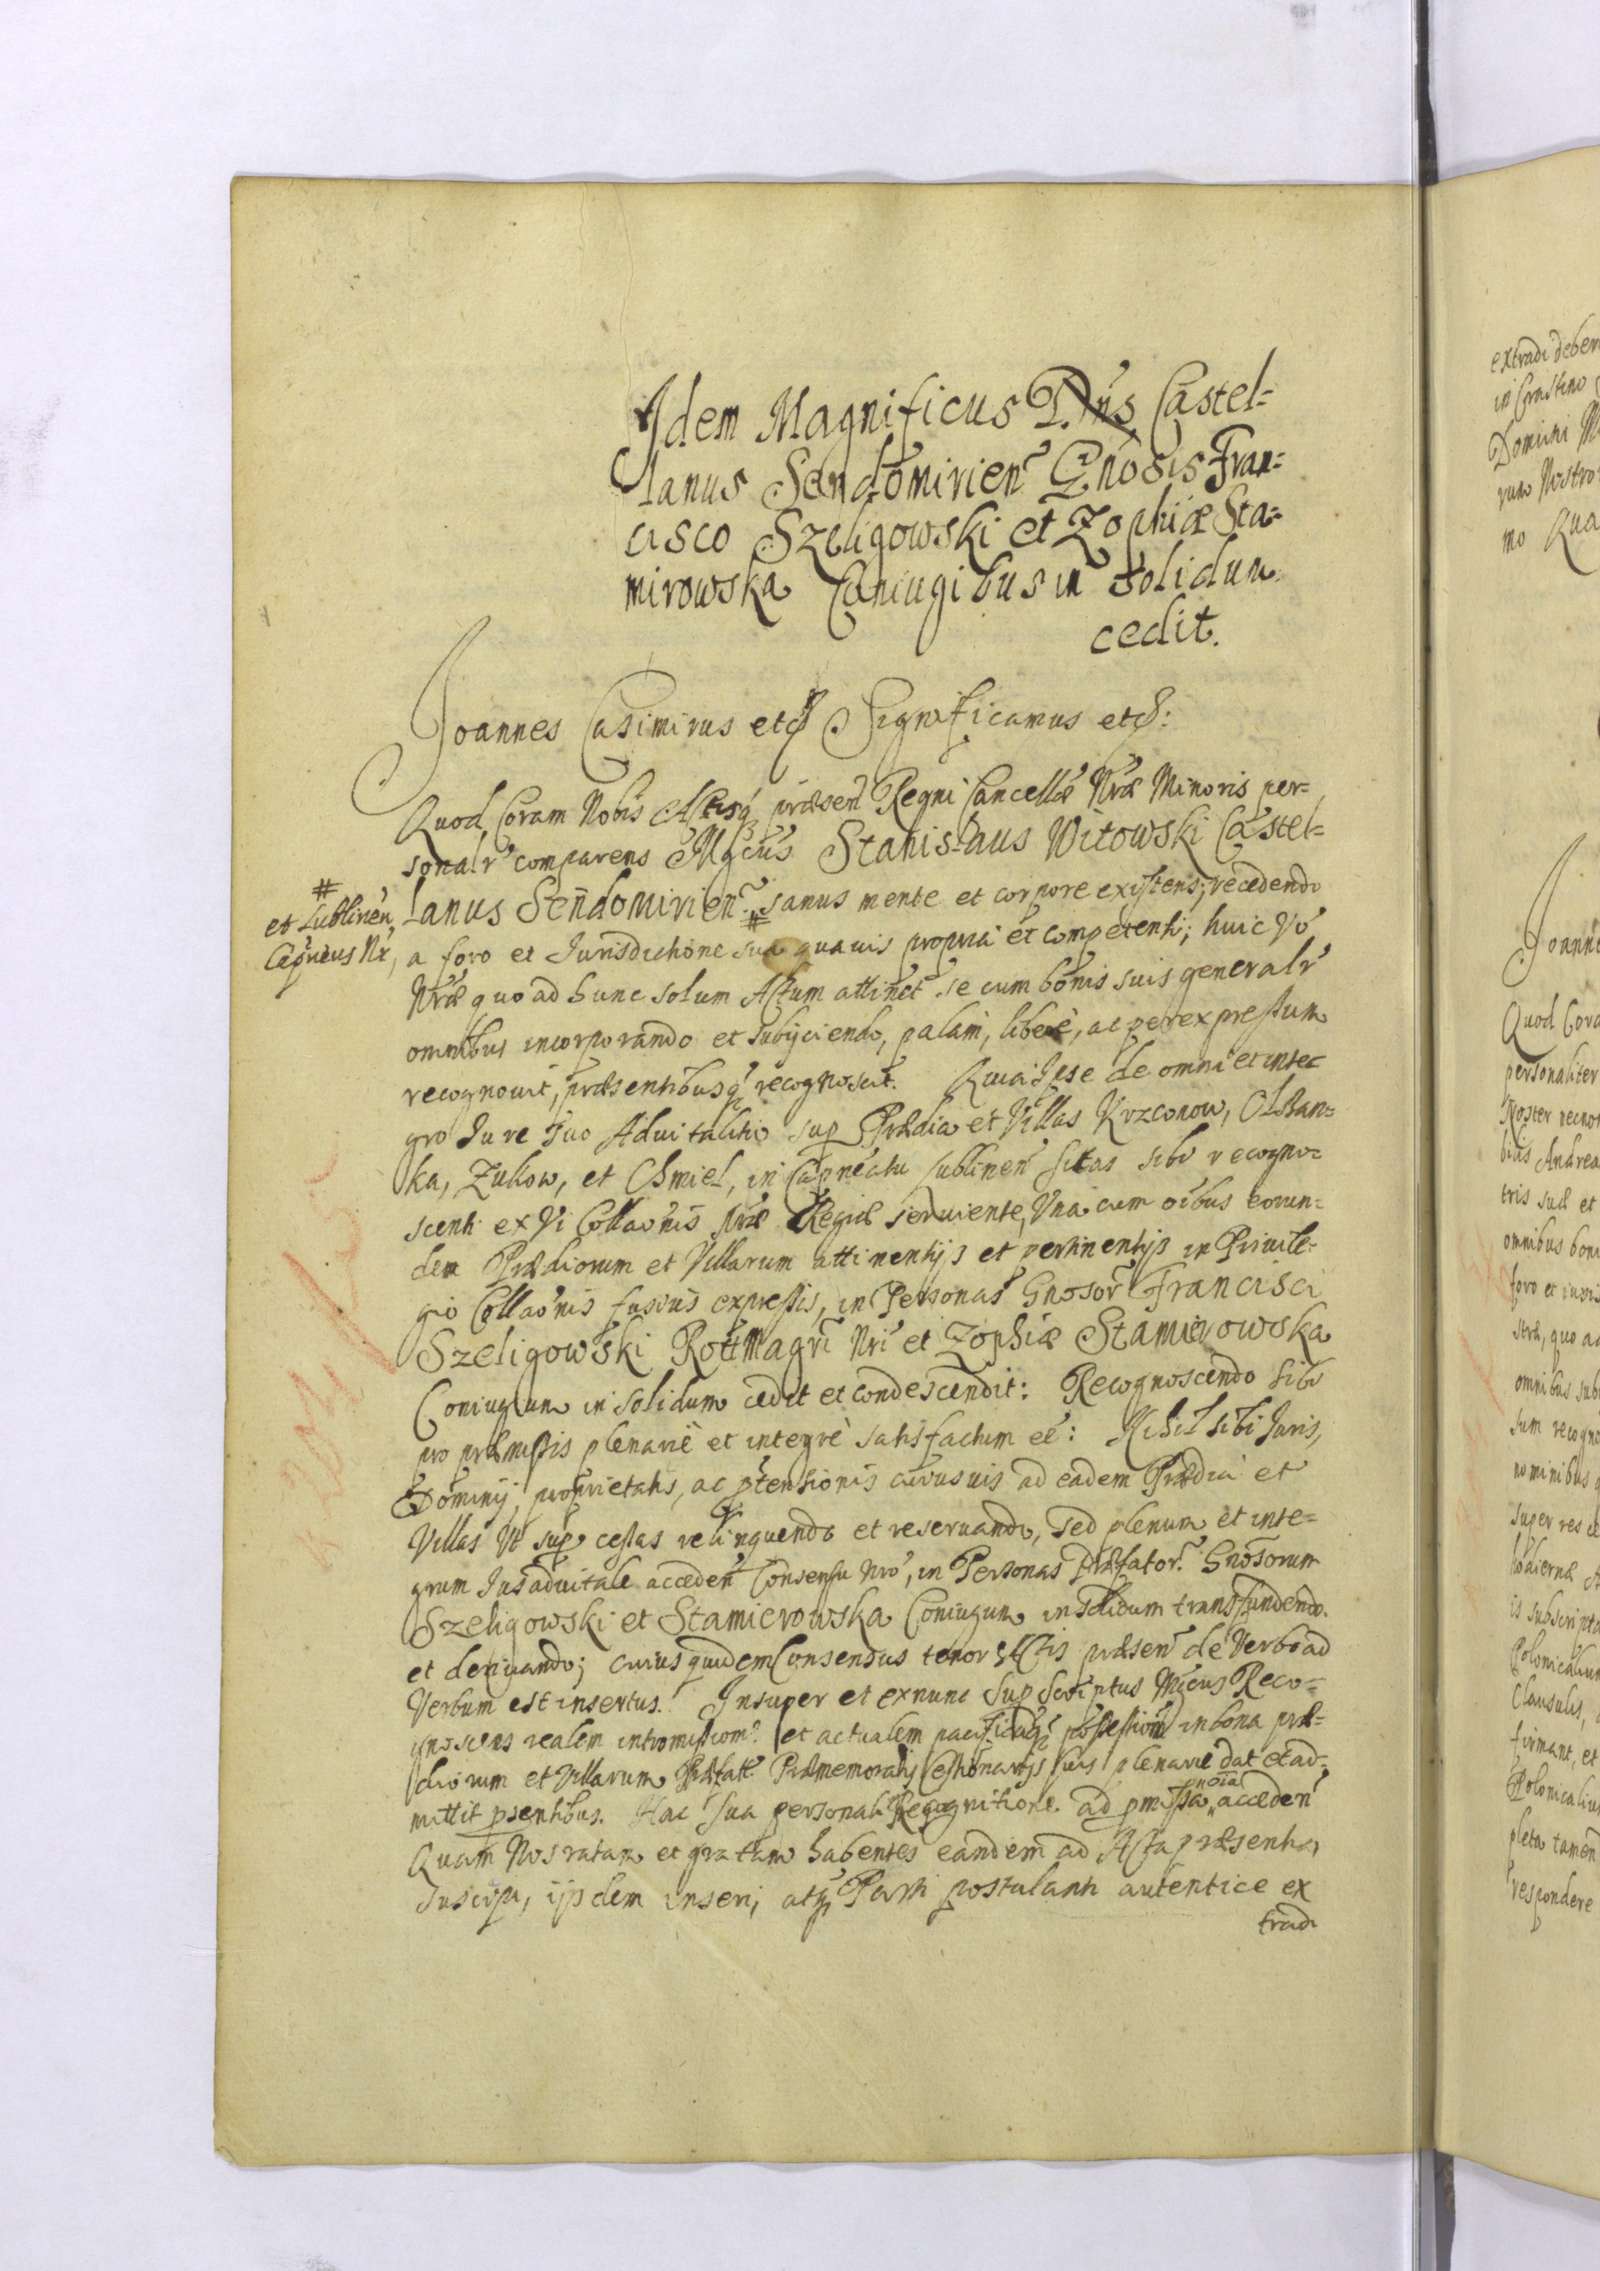 Idem Magnificus Dns Castel=
lanus Sendomirien Gnosis Fran=
cisco Szeligowski et Zophiæ Sta=
mirowska Coniugibus in solidum
cedit.
Joannes Casimirus etc Significamus etc:
Quod Coram Nobis Actisq præsen Regni Cancellæ Nræ Minoris per=
sonalr comparens Mgcus Stanislaus Witowski Castel=
lanus Sendomirien # sanus mente et corpore existens, recedendo
# et Lublinen,
Capneus Nr,
a foro et Jurisdictione sua quauis propria et competenti; huic vo
Nræ quo ad hunc solum Actum attinet se cum bonis suis generalr
omnibus incorporando et subijciendo, palam, libere, ac per expressum
recognouit, præsentibusq recognoscit. Quia Ipse de omni et inte
gro Jure suo Aduitalitio sup Prædia et Villas Krzconow, Olszan=
ka, Zukow, et Chmiel, in Capneatu Lublinen sitas sibi recogno=
scenti ex Vi Collaonis Nræ Regiæ seruiente, Vna cum oibus eorun=
dem Prædiorum et Villarum attinentijs et pertinentijs in Priuile=
gio Collaonis fusius expressis, in Personas Gnosor Francisci
Szeligowski Rottmagri Nri et Zophiæ Stamierowska
Coniugum in solidum cedit et condescendit: Recognoscendo sibi
pro præmissis plenarie et integre satisfactum eé: Nihil sibi Juris,
Dominij, proprietatis, ac ptensionis cuiusuis ad eadem Prædia et
Villas Vt sup cessas relinquendo et reseruando, sed plenum et inte=
grum Jus aduitale acceden Consensu Nro, in Personas Præfator Gnosorum
Szeligowski et Stamierowska Coniugum in solidum transfundendo
et deriuando; cuius quidem Consensus tenor Actis præsen de Verbo ad
Verbum est insertus. Insuper et exnunc sup scriptus Mgcus Reco=
gnoscens realem intromissiom et actualem pacificaq possessiom in bona præ=
diorum et Villarum Præfatt Præmemoratis Cessionarijs suis plenarie dat et ad=
mittit psentibus. Hac sua personali Recognitione ad pmissa noia acceden
Quam Nos ratam et gratam habentes eandem ad Acta præsentia
suscipi, ijsdem inseri, atq Parti postulanti autentice ex
tradi
extradi deber
in Crastino
Domini
rum Nostro
mo Qua
Joanne
Quod Cora
personaliter
Noster necnon
bilis Andrea
tris suæ et
omnibus boni
foro et iuris
stræ, quo ad
omnibus sub
sum recogno
nominibus
super res
hodiernæ
is subscripta
Polonicalium
Clausulis,
firmant, et
Polonicaliu
pleta tamen
respondere